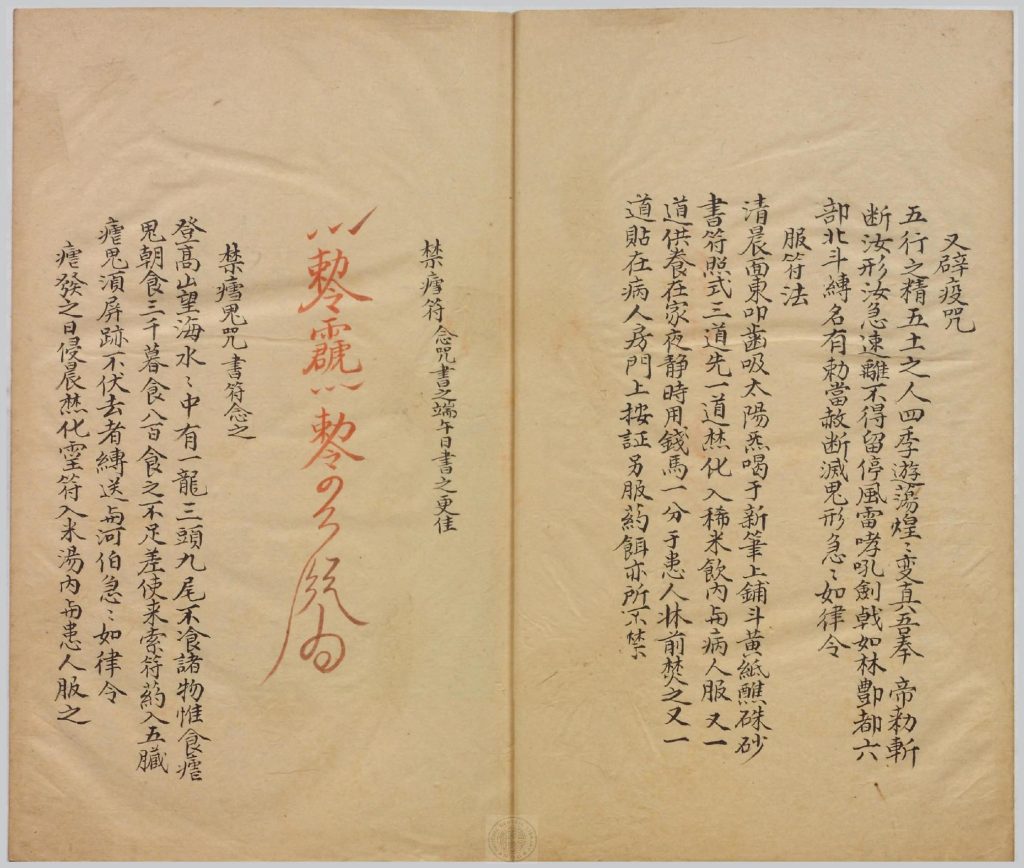 又辟疫咒
五行之精五土之人四季遊蕩煌〻变真吾奉 帝勅斬
断汝形汝急速離不得留停風雷哮吼劍戟如林酆都六
部北斗縛名有勅當赦断滅鬼形急〻如律令
服符法
清晨面東叩歯吸太陽炁喝于新筆上鋪斗黄紙醮硃砂
書符照式三道先一道焚化入稀米飲内与病人服又一
道供養在家夜静時用錢馬一分于患人牀前焚之又一
道貼在病人房門上按証另服葯餌亦所不禁
禁㾮符 念咒書之端午日書之更佳
勅令
勅令
禁瘧鬼咒 書符念之
登高山望海水〻中有一龍三頭九尾不飡諸物惟食瘧
鬼朝食三千暮食八百食之不足差使来索符葯入五臟
瘧鬼湏屏跡不伏去者縛送与河伯急〻如律令
瘧發之日侵晨焚化霊符入米湯内与患人服之